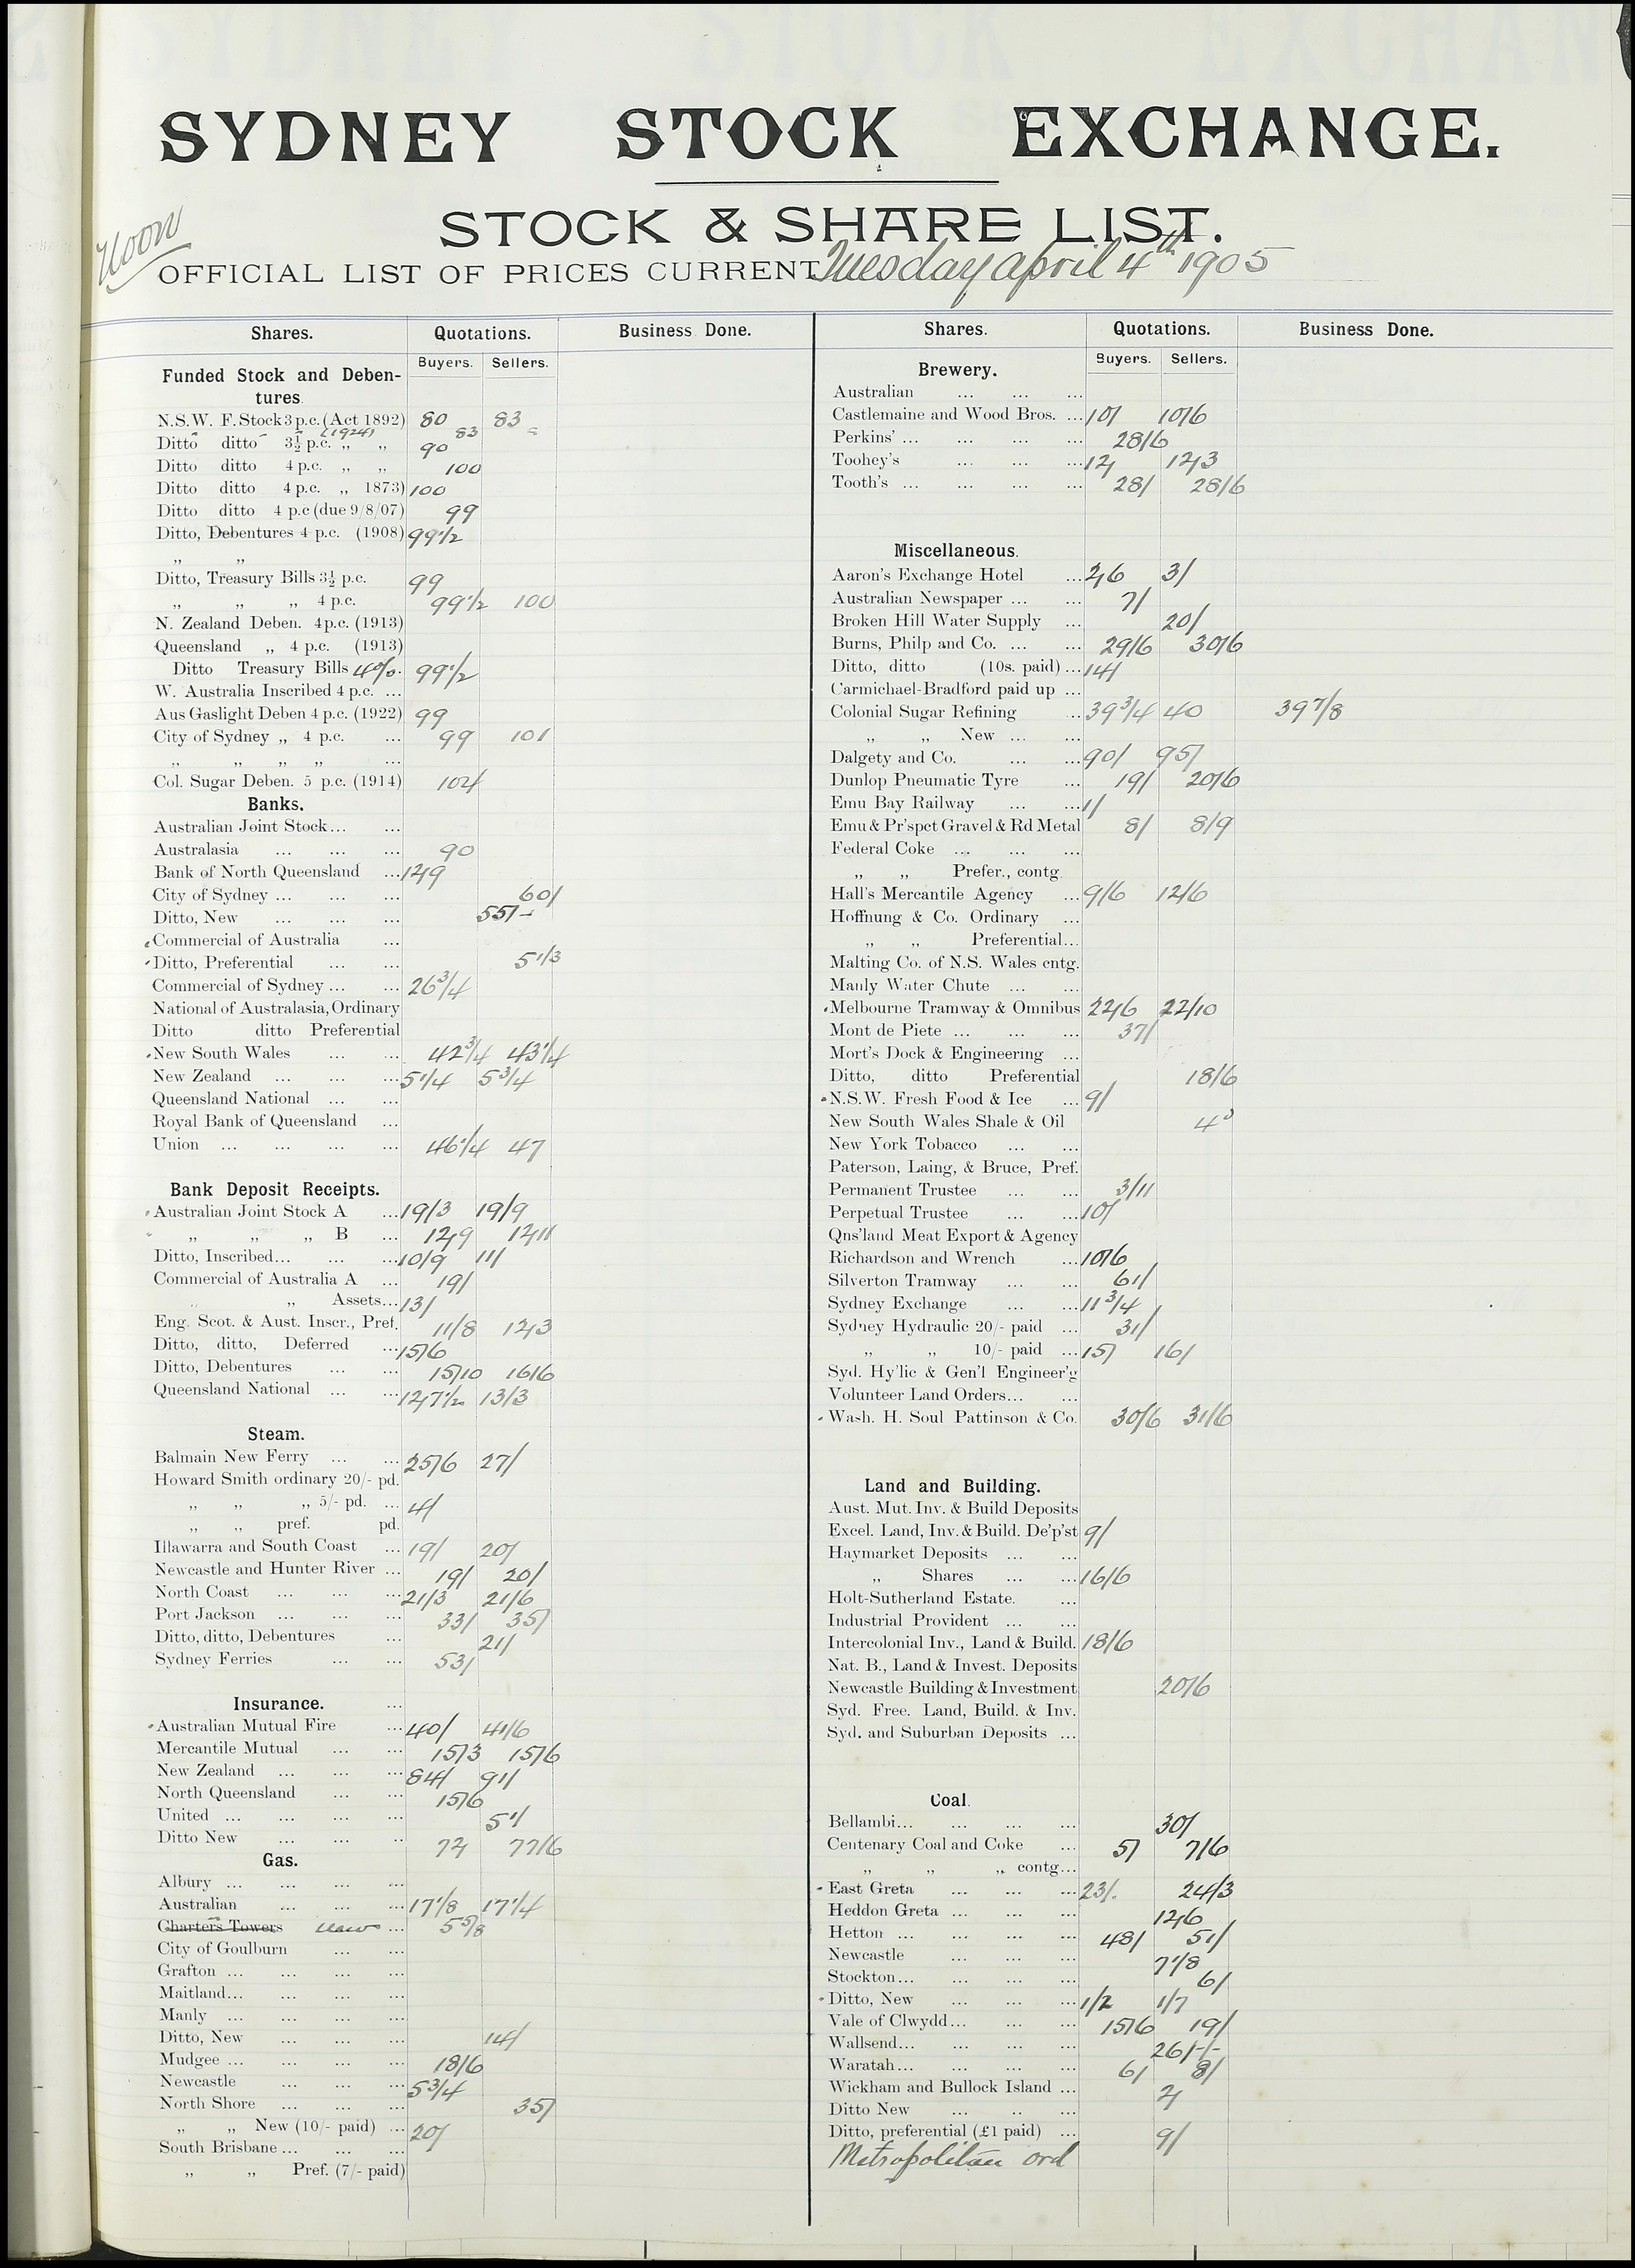 SYDNEY STOCK EXCHANGE.
STOCK & SHARE LIST.
Noon
OFFICIAL LIST OF PRICES CURRENT Tuesday April 4th 1905
Shares. Quotations. Business Done.
Buyers. Sellers.
Funded Stock and Deben-
tures
N.S.W. F. Stock 3 p.c. (Act 1892) 80 83
Ditto ditto 3½ p.c. (1924) „ „ 90 83
Ditto ditto 4 p.c. „ „ 100
Ditto ditto 4 p.c. „ 1873) 100
Ditto ditto 4 p.c (due 9/8/07) 99
Ditto, Debentures 4 p.c. (1908) 99 1/2
„ „
Ditto, Treasury Bills 3½ p.c. 99
„ „ „ 4 p.c. 99 1/2 100
N. Zealand Deben. 4 p.c. (1913)
Queensland „ 4 p.c. (1913)
Ditto Treasury Bills 4%. 99 1/2
W. Australia Inscribed 4 p.c. ...
Aus Gaslight Deben 4 p.c. (1922) 99
City of Sydney „ 4 p.c. ... 99 101
„ „ „ „ ...
Col. Sugar Deben. 5 p.c. (1914) 104
Banks.
Australian Joint Stock... ...
Australasia ... ... ... 90
Bank of North Queensland ... 12/9
City of Sydney ... ... ... 60/
Ditto, New ... ... ... 55/-
Commercial of Australia ...
Ditto, Preferential ... ... 5 1/3
Commercial of Sydney ... ... 26 3/4
National of Australasia, Ordinary
Ditto ditto Preferential
New South Wales ... ... 42 3/4 43 1/4
New Zealand ... ... ... 5 1/4 5 3/4
Queensland National ... ...
Royal Bank of Queensland ...
Union ... ... ... ... 46 1/4 47
Bank Deposit Receipts.
Australian Joint Stock A ... 19/3 19/9
„ „ „ B ... 12/9 12/11
Ditto, Inscribed... ... ... 10/9 11/
Commercial of Australia A ... 19/
„ „ Assets... 13/
Eng. Scot. & Aust. Inscr., Pref. 11/8 12/3
Ditto, ditto, Deferred ... 15/6
Ditto, Debentures ... ... 15/10 16/6
Queensland National ... ... 12/7 1/2 13/3
Steam.
Balmain New Ferry ... ... 25/6 27/
Howard Smith ordinary 20/- pd.
„ „ „ 5/- pd. ... 4/
„ „ pref. pd.
Illawarra and South Coast ... 19/ 20/
Newcastle and Hunter River ... 19/ 20/
North Coast ... ... ... 21/3 21/6
Port Jackson ... ... ... 33/ 35/
Ditto, ditto, Debentures ... 21/
Sydney Ferries ... ... 53/
Insurance. ...
Australian Mutual Fire ... 40/ 41/6
Mercantile Mutual ... ... 15/3 15/6
New Zealand ... ... ... 84/ 91/
North Queensland ... ... 15/6
United ... ... ... ... 51/
Ditto New ... ... .. 72/ 77/6
Gas.
Albury ... ... ... ...
Australian ... ... ... 17 1/8 17 1/4
Charters Towers New ... 5 5/8
City of Goulburn ... ...
Grafton ... ... ... ...
Maitland... ... ... ...
Manly ... ... ... ...
Ditto, New ... ... ... 14/
Mudgee ... ... ... ... 18/6
Newcastle ... ... ... 5 3/4
North Shore ... ... ... 35/
„ „ New (10/- paid) ... 20/
South Brisbane ... ... ...
„ „ Pref. (7/- paid)
Shares. Quotations. Business Done.
Buyers. Sellers.
Brewery.
Australian ... ... ...
Castlemaine and Wood Bros. ... 10/ 10/6
Perkins' ... ... ... ... 28/6
Toohey's ... ... ... 12/ 12/3
Tooth's ... ... ... ... 28/ 28/6
Miscellaneous.
Aaron's Exchange Hotel ... 2/6 3/
Australian Newspaper ... ... 7/
Broken Hill Water Supply ... 20/
Burns, Philp and Co. ... ... 29/6 30/6
Ditto, ditto (10s. paid) ... 14/
Carmichael-Bradford paid up ...
Colonial Sugar Refining ... 39 3/4 40 39 7/8
„ „ New ... ...
Dalgety and Co. ... ... 90/ 95/
Dunlop Pneumatic Tyre ... 19/ 20/6
Emu Bay Railway ... ... 1/
Emu & Pr'spct Gravel & Rd Metal 8/ 8/9
Federal Coke ... ... ...
„ „ Prefer., contg.
Hall's Mercantile Agency ... 9/6 12/6
Hoffnung & Co. Ordinary ...
„ „ Preferential...
Malting Co. of N.S. Wales cntg.
Manly Water Chute ... ...
Melbourne Tramway & Omnibus 22/6 22/10
Mont de Piete ... ... ... 37/
Mort's Dock & Engineering ...
Ditto, ditto Preferential 18/6
N.S.W. Fresh Food & Ice ... 9/
New South Wales Shale & Oil
New York Tobacco ... ...
Paterson, Laing, & Bruce, Pref.
Permanent Trustee ... ... 3/11
Perpetual Trustee ... ... 10/
Qns'land Meat Export & Agency
Richardson and Wrench ... 10/6
Silverton Tramway ... ... 61/
Sydney Exchange ... ... 11 3/4
Sydney Hydraulic 20/- paid ... 31/
„ „ 10/- paid ... 15/ 16/
Syd. Hy'lic & Gen'l Engineer'g
Volunteer Land Orders... ...
Wash. H. Soul Pattinson & Co. 30/6 31/6
Land and Building.
Aust. Mut. Inv. & Build Deposits
Excel. Land, Inv. & Build. De'p'st 9/
Haymarket Deposits ... ...
„ Shares ... ... 16/6
Holt-Sutherland Estate. ...
Industrial Provident ... ...
Intercolonial Inv., Land & Build. 18/6
Nat. B., Land & Invest. Deposits
Newcastle Building & Investment 20/6
Syd. Free. Land, Build. & Inv.
Syd. and Suburban Deposits ...
Coal.
Bellambi... ... ... ... 30/
Centenary Coal and Coke ... 5/ 7/6
„ „ „ contg...
East Greta ... ... ... 23/. 24/3
Heddon Greta ... ... ... 12/6
Hetton ... ... ... ... 48/ 51/
Newcastle ... ... ... 7 1/8
Stockton... ... ... ... 6/
Ditto, New ... ... ... 1/2 1/7
Vale of Clwydd... ... ... 15/6 19/
Wallsend... ... ... ... 26/-/-
Waratah... ... ... ... 6/ 8/
Wickham and Bullock Island ... 2/
Ditto New ... .. ...
Ditto, preferential (£1 paid) ... 9/
Metropolitan ord